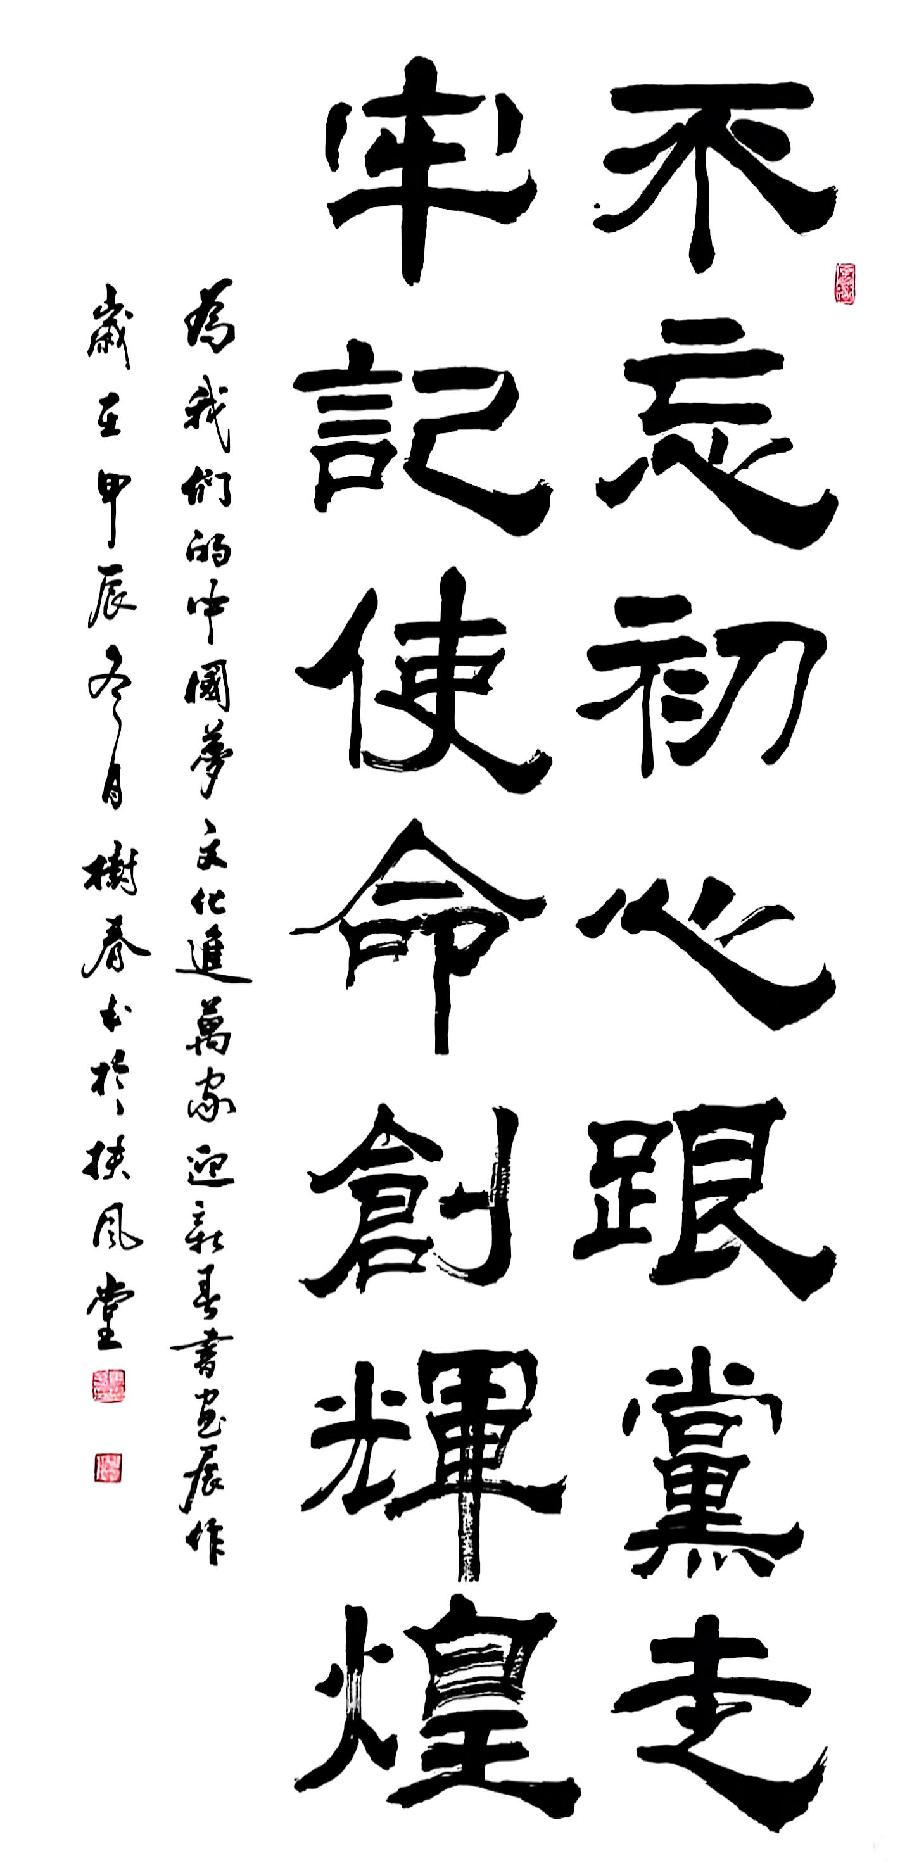 不忘初心跟黨走
牢記使命創輝煌
為我們的中國夢文化進萬家迎新春書画展作
歲在甲辰冬月樹春书於扶風堂